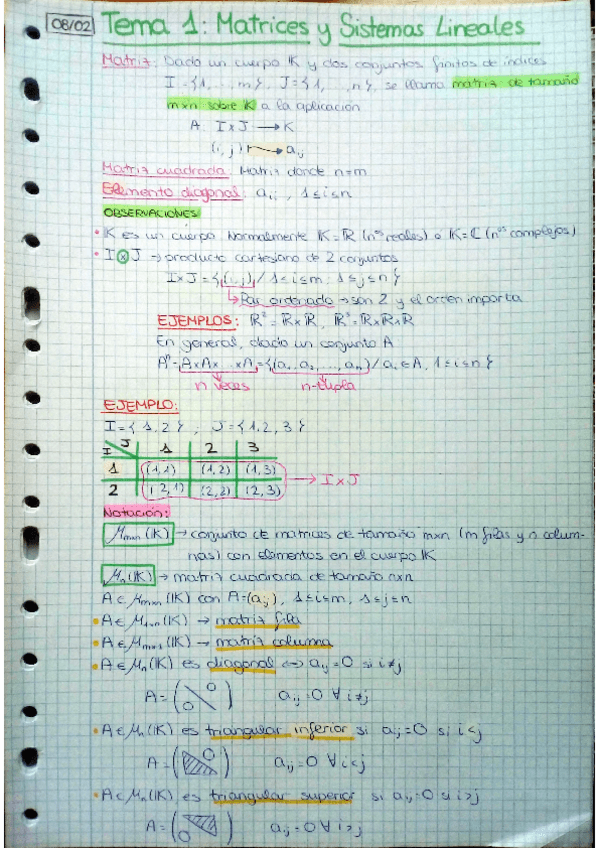 08/02 Tema 1: Matrices y Sistemas Lineales
Matriz: Dado un cuerpo K y dos conjuntos finitos de índices
I = {1, ..., m}, J = {1, ..., n}, se llama matriz de tamaño
mxn sobre K a la aplicación
A: I x J → K
(i, j) ↦ aij
Matriz cuadrada: Matriz donde n=m
Elemento diagonal: aii, 1≤i≤n
OBSERVACIONES
• K es un cuerpo. Normalmente K = R (nos reales) o K = C (nos complejos)
• I ⓧ J → producto cartesiano de 2 conjuntos
I x J = {(i, j) / 1≤i≤m, 1≤j≤n}
↳ Par ordenado → son 2 y el orden importa
EJEMPLOS: R² = R x R, R³ = R x R x R
En general, dado un conjunto A
Aⁿ = A x A x ... x A = {(a1, a2, ..., an) / ai ∈ A, 1≤i≤n}
n veces n-tupla
EJEMPLO:
I = {1, 2}, J = {1, 2, 3}
I J 1 2 3
1 (1,1) (1,2) (1,3) → I x J
2 (2,1) (2,2) (2,3)
Notación:
Mmxn(K) → conjunto de matrices de tamaño mxn (m filas y n colum-
nas) con elementos en el cuerpo K
Mn(K) → matriz cuadrada de tamaño nxn
A ∈ Mmxn(K) con A = (aij), 1≤i≤m, 1≤j≤n
• A ∈ M1xn(K) → matriz fila
• A ∈ Mmx1(K) → matriz columna
• A ∈ Mn(K) es diagonal ⇔ aij = 0 si i≠j
A = (0 \ 0) aij = 0 ∀ i≠j
• A ∈ Mn(K) es triangular inferior si aij = 0 si i<j
A = (0) aij = 0 ∀ i<j
• A ∈ Mn(K) es triangular superior si aij = 0 si i>j
A = (0) aij = 0 ∀ i>j